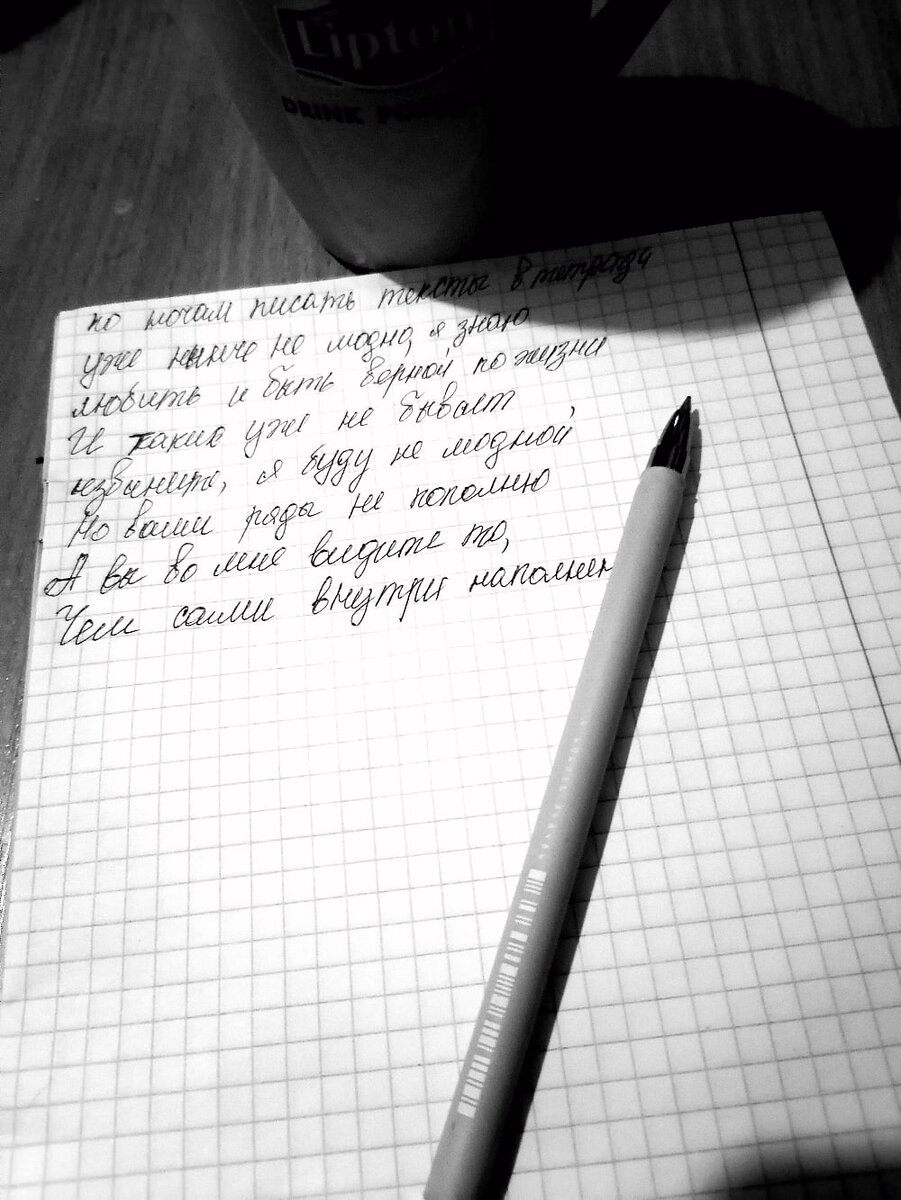 Lipton
DRINK
по ночам писать тексты в тетради
уже нынче не модно, я знаю
любить и быть верной по жизни
И таких уже не бывает
извините, я буду не модной
Но ваши ряды не пополню
А вы во мне видите то,
Чем сами внутри наполнен